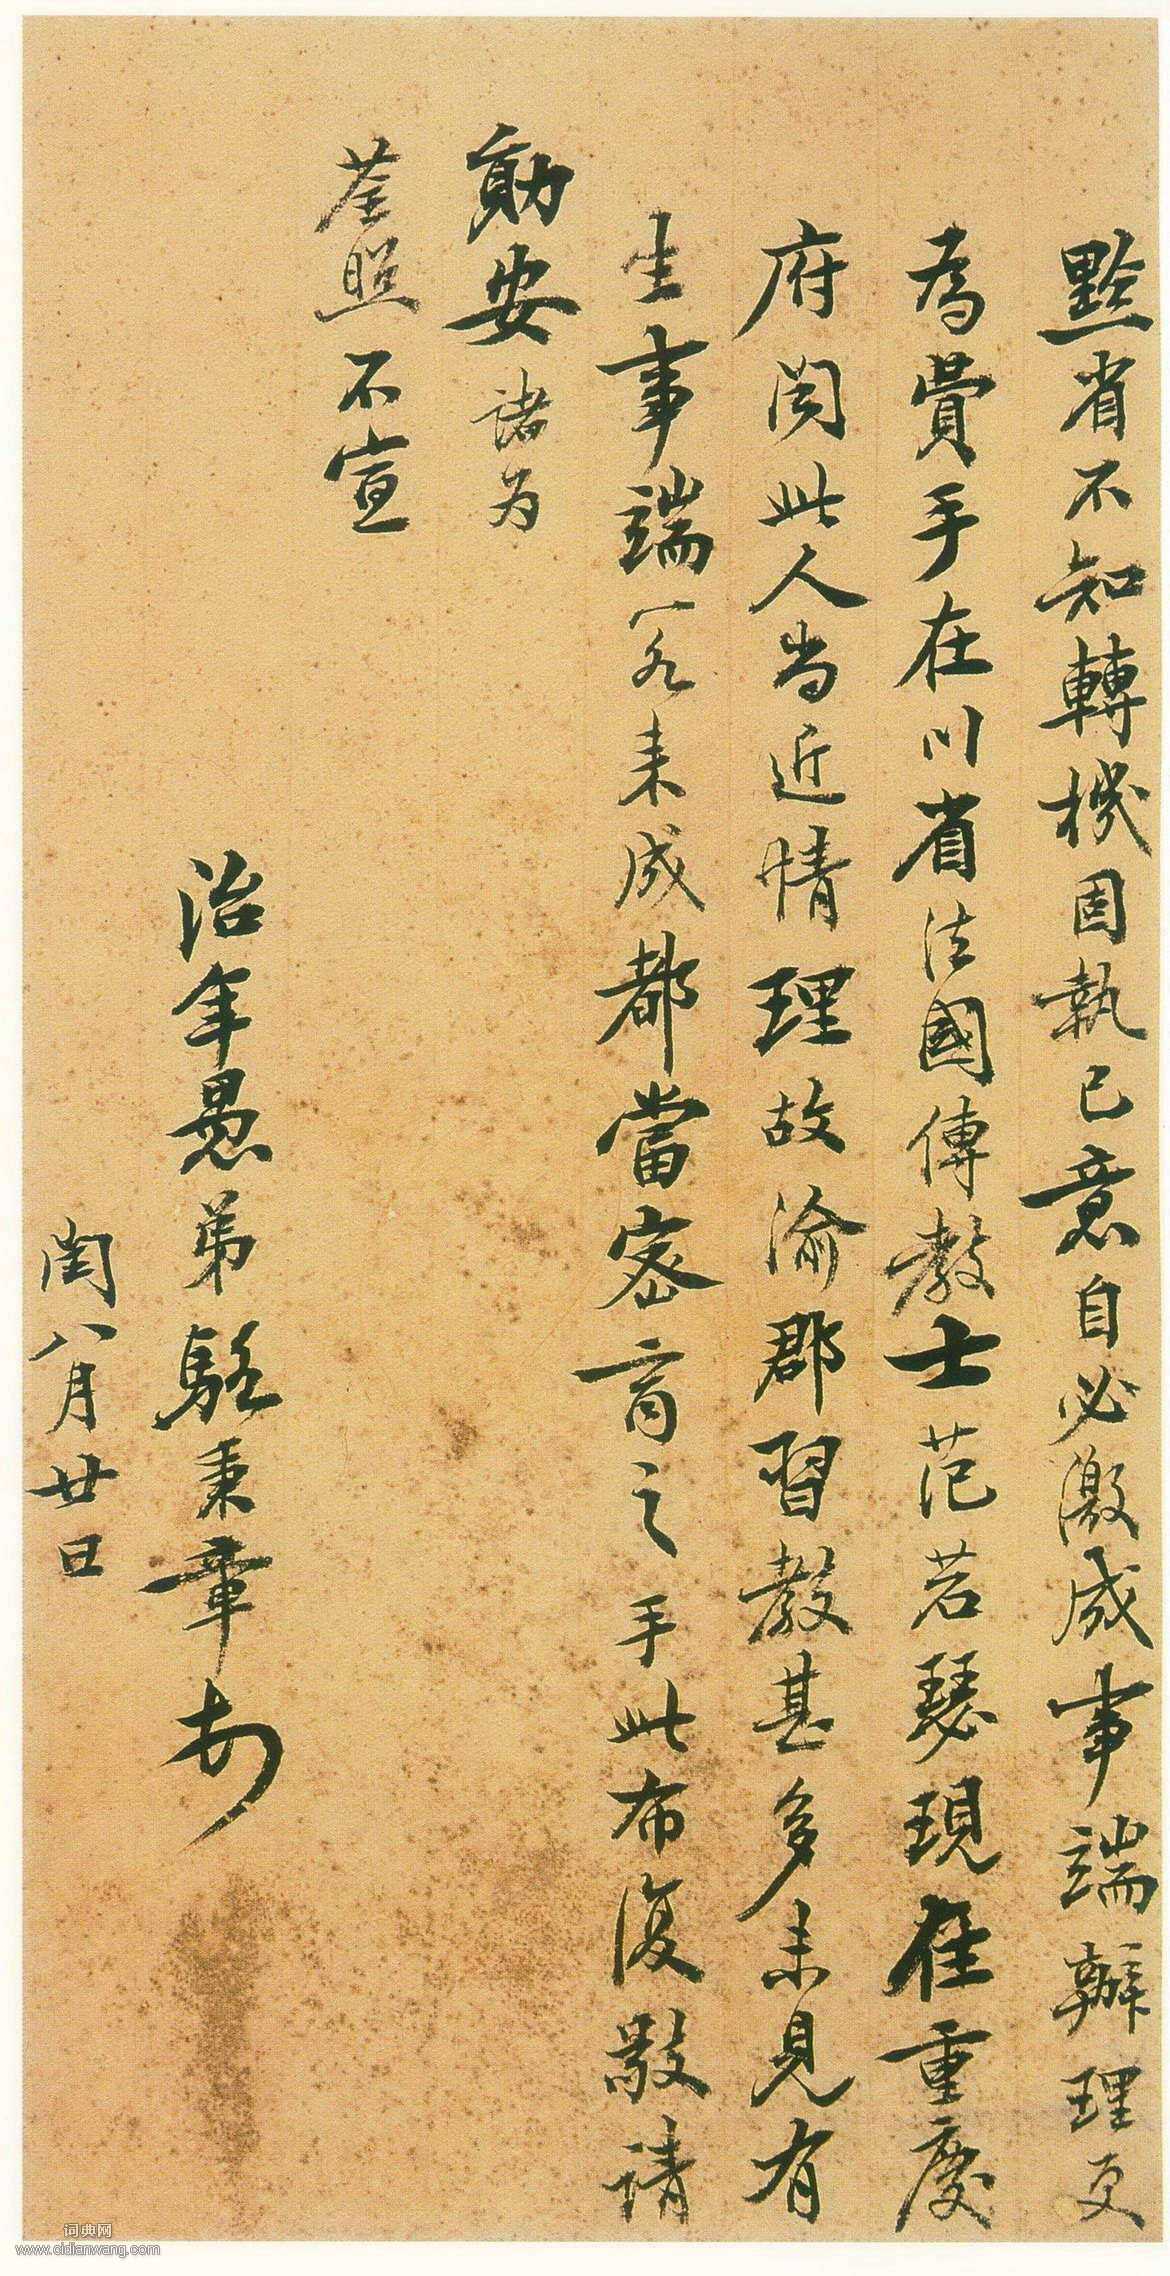 黔省不知轉機固執已意自必激成事端辦理更
為費手在川省法國傳教士范若瑟現在重慶
府閱此人尚近情理故渝郡習教甚多未見有
生事端一名來成都當密商之手此布復敬請
勛安諸為
荃照不宣
治年愚弟駱秉章
閏八月廿日
词典网
www.cidianwang.com